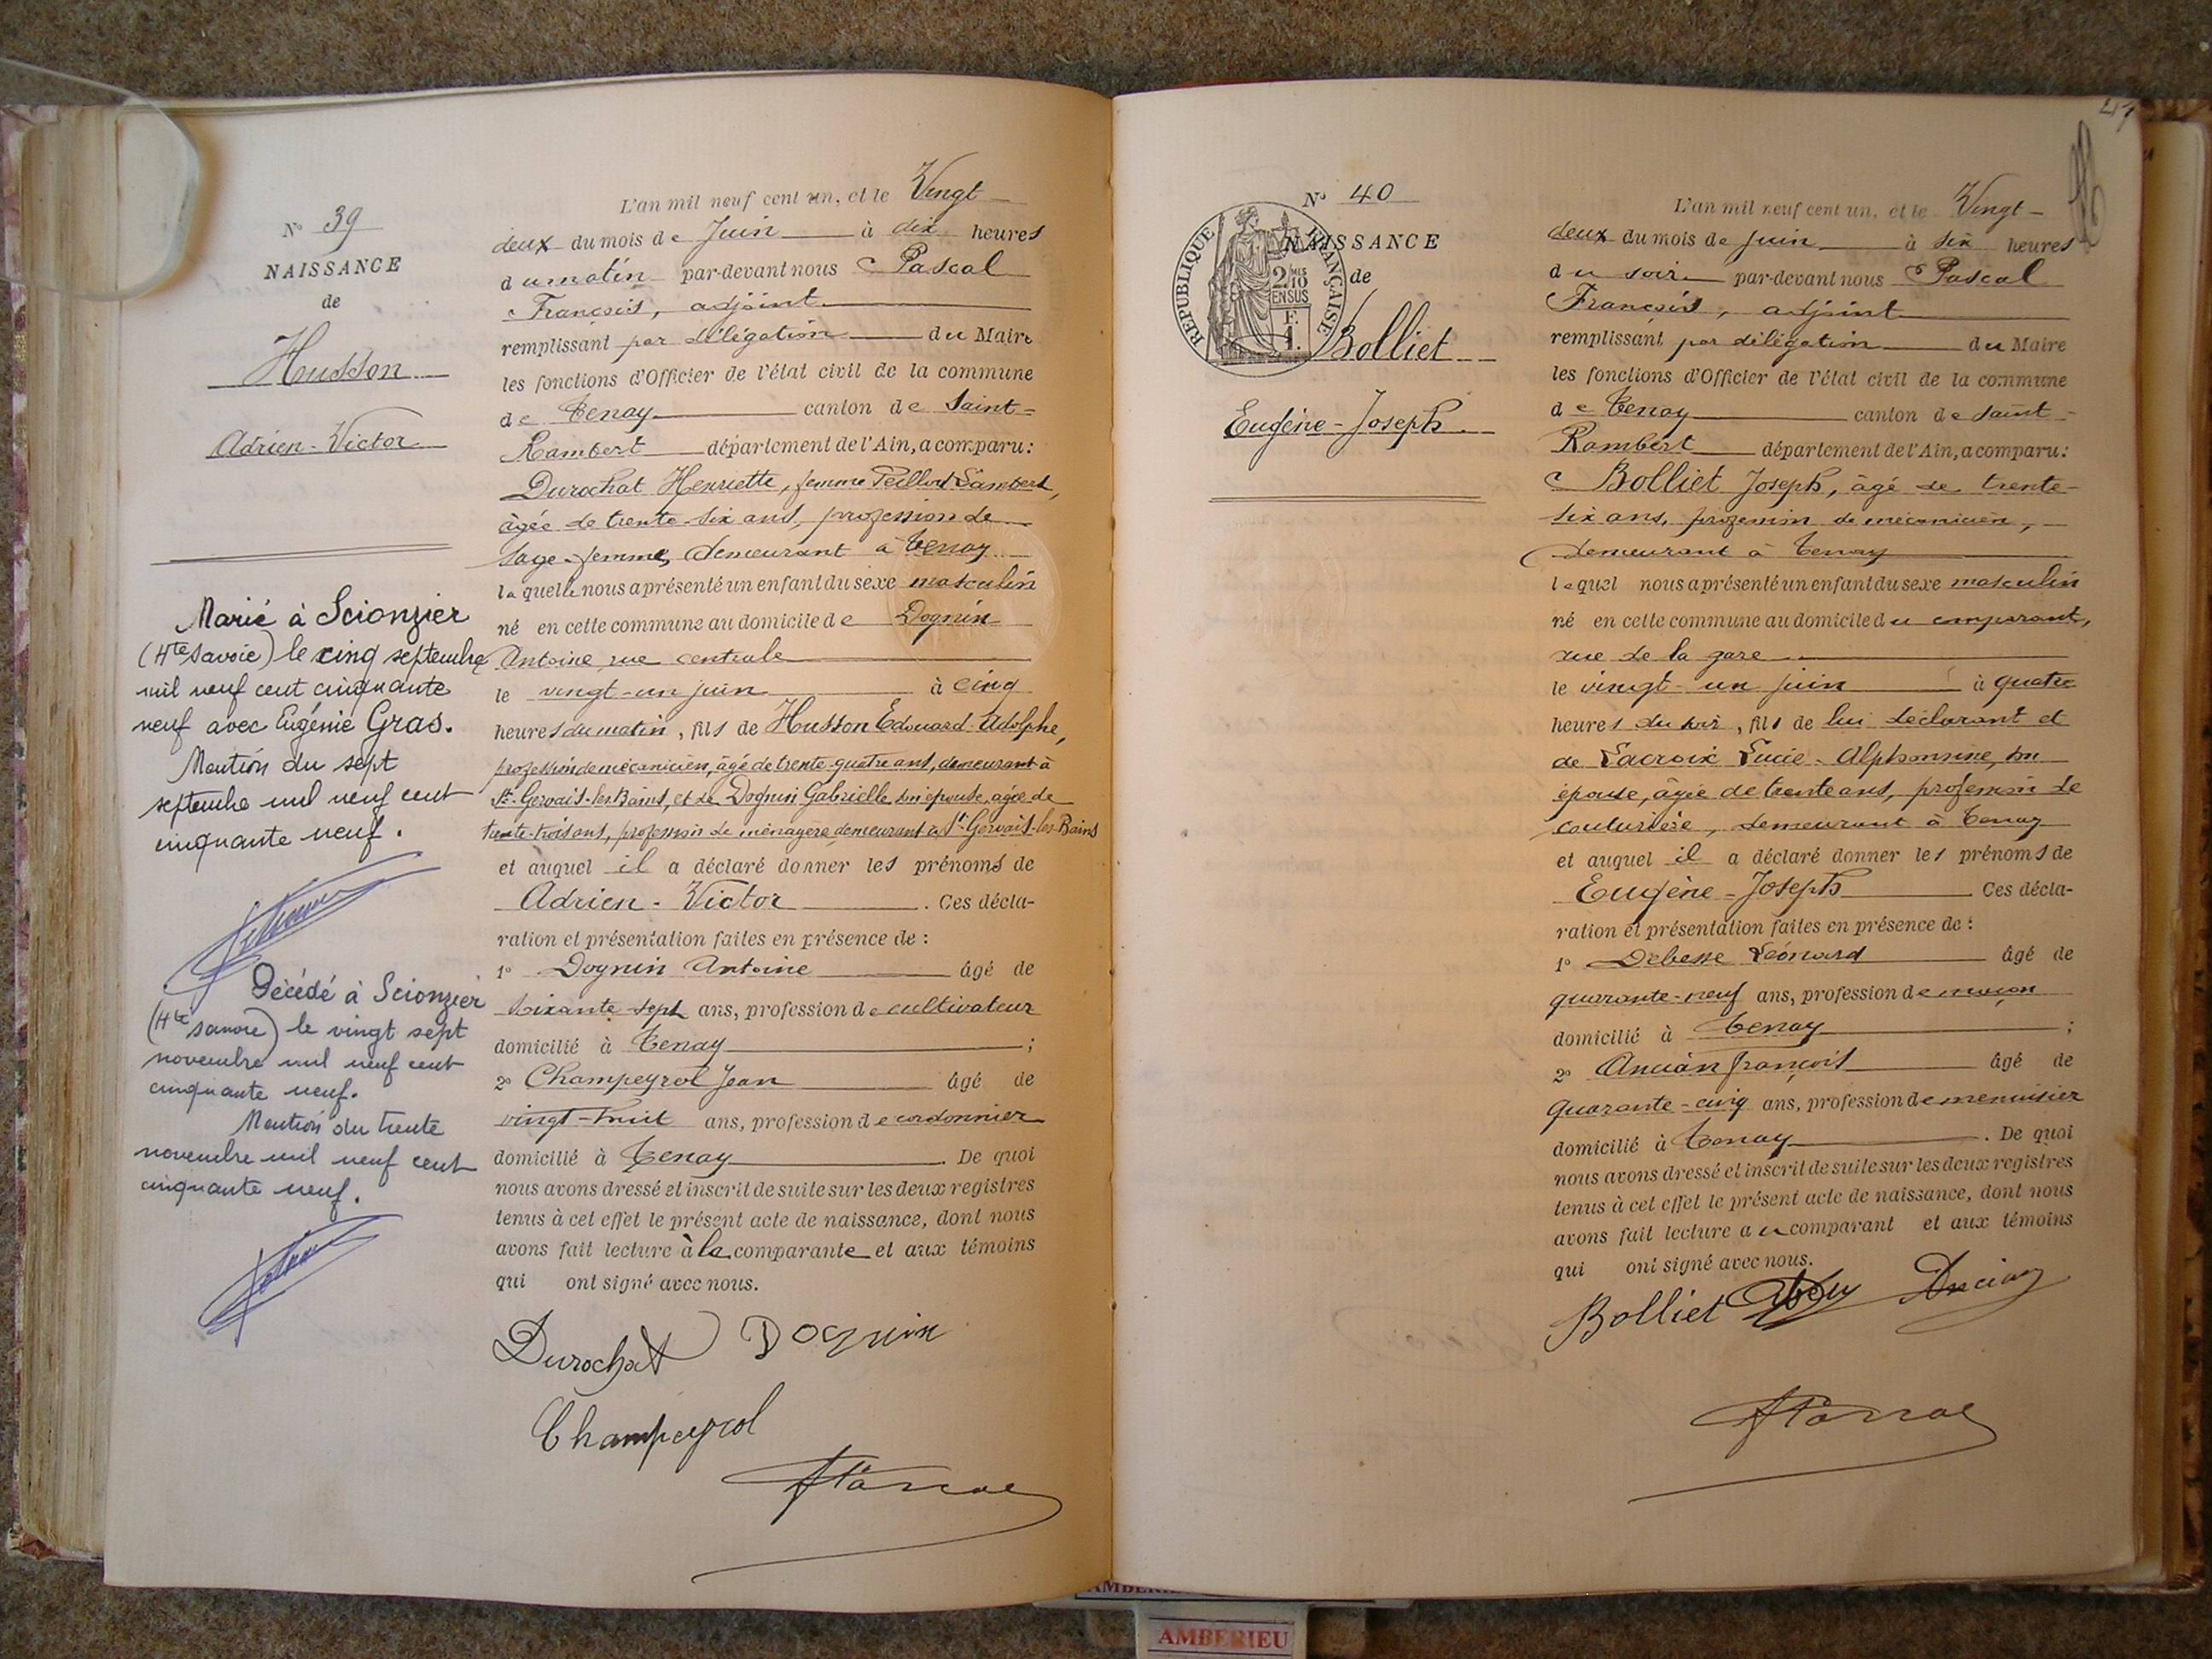 N° 39
NAISSANCE
de
Husson
Adrien-Victor
Marié à Scionzier
(Hte Savoie) le cinq septembre
mil neuf cent cinquante
neuf avec Eugénie Gras.
Mention du sept
septembre mil neuf cent
cinquante neuf.
Décédé à Scionzier
(Hte Savoie) le vingt sept
novembre mil neuf cent
cinquante neuf.
Mention du trente
novembre mil neuf cent
cinquante neuf.
L'an mil neuf cent un, et le Vingt
deux du mois de Juin à dix heures
du matin par-devant nous Pascal
François, adjoint
remplissant par délégation du Maire
les fonctions d'Officier de l'état civil de la commune
de Tenay canton de Saint-
Rambert département de l'Ain, a comparu:
Durochat Henriette, femme Peillod Lambert,
âgée de trente-six ans, profession de
sage-femme, demeurant à Tenay
laquelle nous a présenté un enfant du sexe masculin
né en cette commune au domicile de Dognin
Antoine, rue centrale
le vingt-un juin à cinq
heures du matin, fils de Husson Edouard-Adolphe,
profession de mécanicien, âgé de trente-quatre ans, demeurant à
St-Gervais-les-Bains, et de Dognin Gabrielle son épouse, âgée de
trente-trois ans, profession de ménagère demeurant à St-Gervais-les-Bains
et auquel il a déclaré donner les prénoms de
Adrien-Victor. Ces décla-
ration et présentation faites en présence de :
1° Dognin Antoine âgé de
soixante-sept ans, profession de cultivateur
domicilié à Tenay ;
2° Champeyrol Jean âgé de
vingt-huit ans, profession de cordonnier
domicilié à Tenay. De quoi
nous avons dressé et inscrit de suite sur les deux registres
tenus à cet effet le présent acte de naissance, dont nous
avons fait lecture à la comparante et aux témoins
qui ont signé avec nous.
Durochat Dognin
Champeyrol
47
N° 40
RÉPUBLIQUE FRANÇAISE
2/10 EN SUS
F. 1.
NAISSANCE
de
Bolliet
Eugène-Joseph
L'an mil neuf cent un, et le Vingt-
deux du mois de juin à six heures
du soir par-devant nous Pascal
François, adjoint
remplissant par délégation du Maire
les fonctions d'Officier de l'état civil de la commune
de Tenay canton de Saint-
Rambert département de l'Ain, a comparu:
Bolliet Joseph, âgé de trente-
six ans, profession de mécanicien,
demeurant à Tenay
lequel nous a présenté un enfant du sexe masculin
né en cette commune au domicile du comparant,
rue de la gare
le vingt-un juin à quatre
heures du soir, fils de lui déclarant et
de Lacroix Lucie-Alphonsine, son
épouse, âgée de trente ans, profession de
couturière, demeurant à Tenay
et auquel il a déclaré donner les prénoms de
Eugène-Joseph Ces décla-
ration et présentation faites en présence de :
1° Debesse Léonard âgé de
quarante-neuf ans, profession de maçon
domicilié à Tenay ;
2° Ancian françois âgé de
quarante-cinq ans, profession de menuisier
domicilié à Tenay. De quoi
nous avons dressé et inscrit de suite sur les deux registres
tenus à cet effet le présent acte de naissance, dont nous
avons fait lecture au comparant et aux témoins
qui ont signé avec nous.
Bolliet Ancian
AMBERIEU